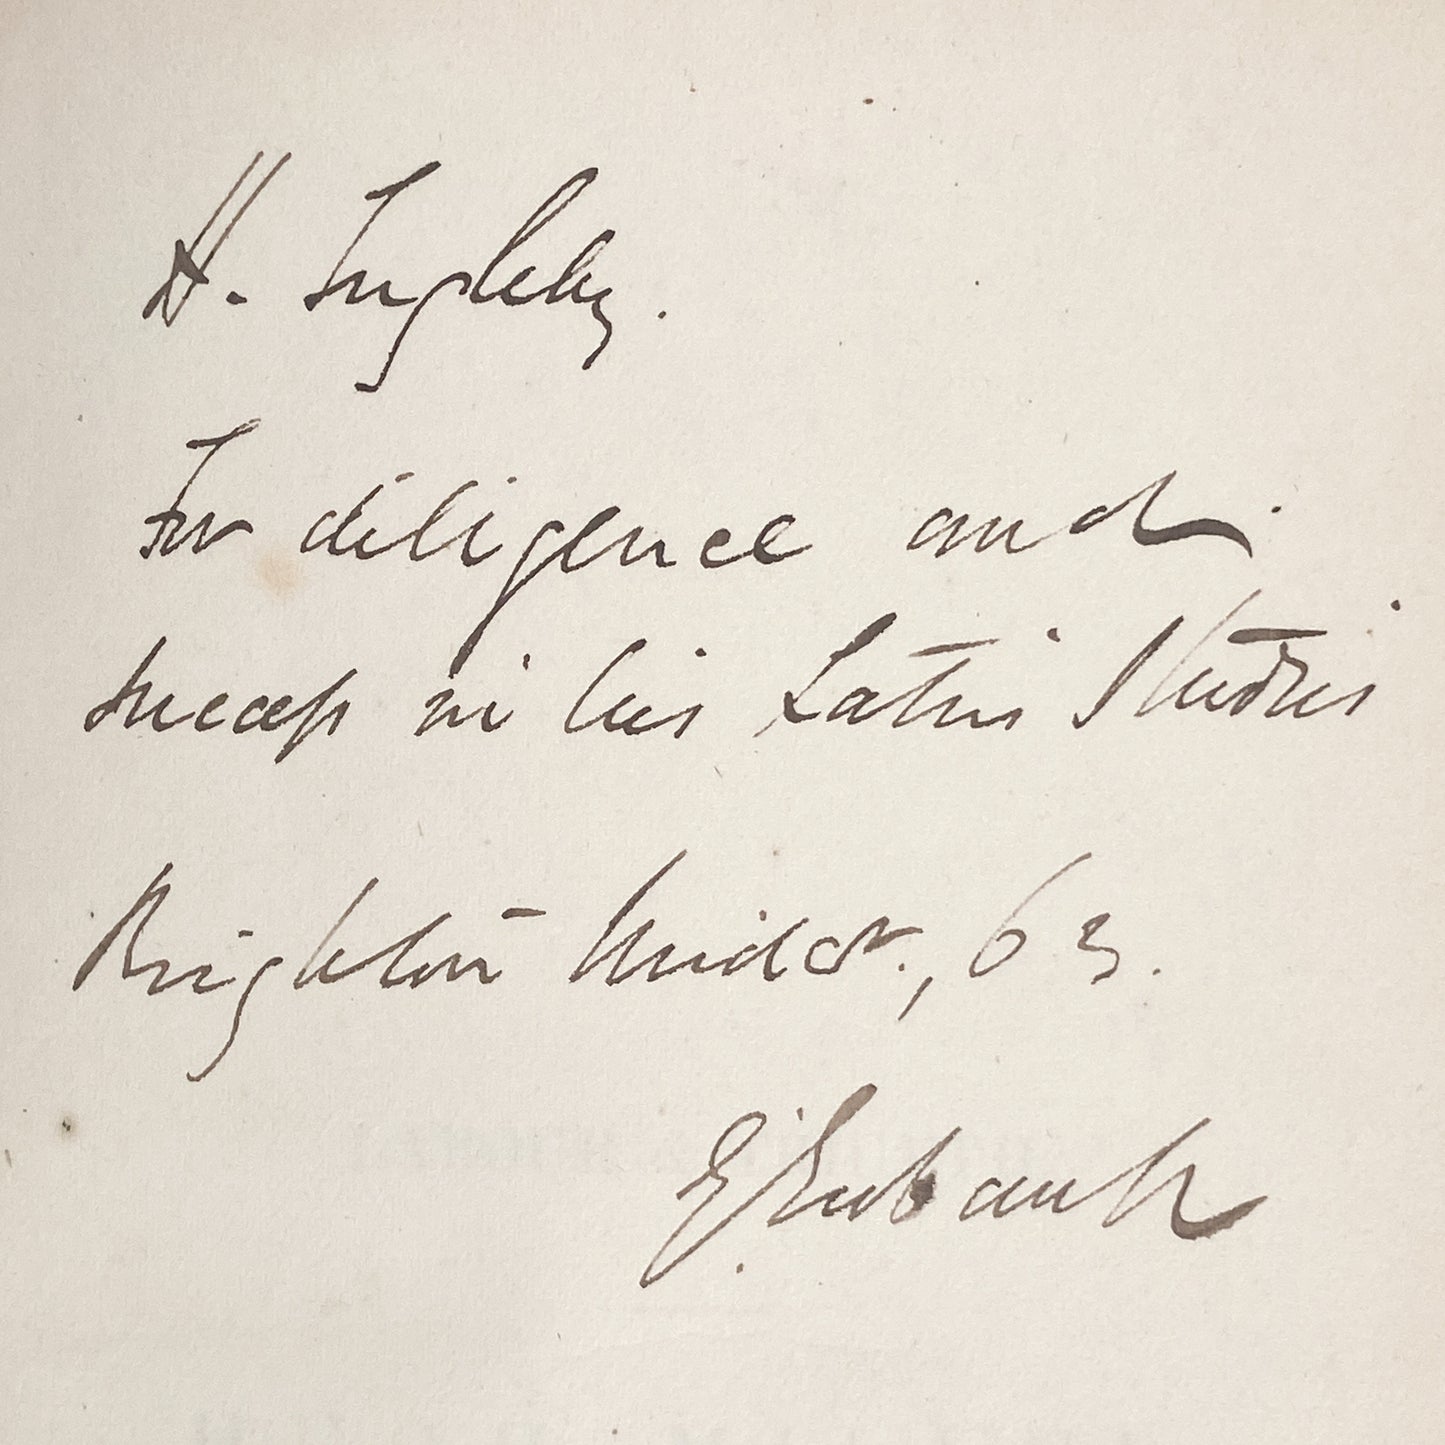 H. Ingleby.
For diligence and
success in his Latin Studies
Brighton Midsr., 63.
Ewbank